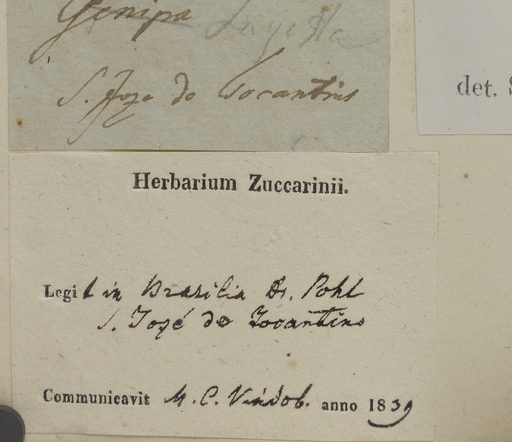 Genipa
S. Joze do Tocantins
det. S
Herbarium Zuccarinii.
Legit in Brasilia Dr. Pohl
S. José do Tocantins
Communicavit M. C. Vindob. anno 1839